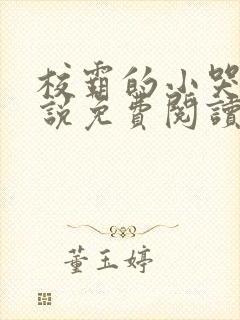 校霸的小哭
說免費閱讀
董玉婷